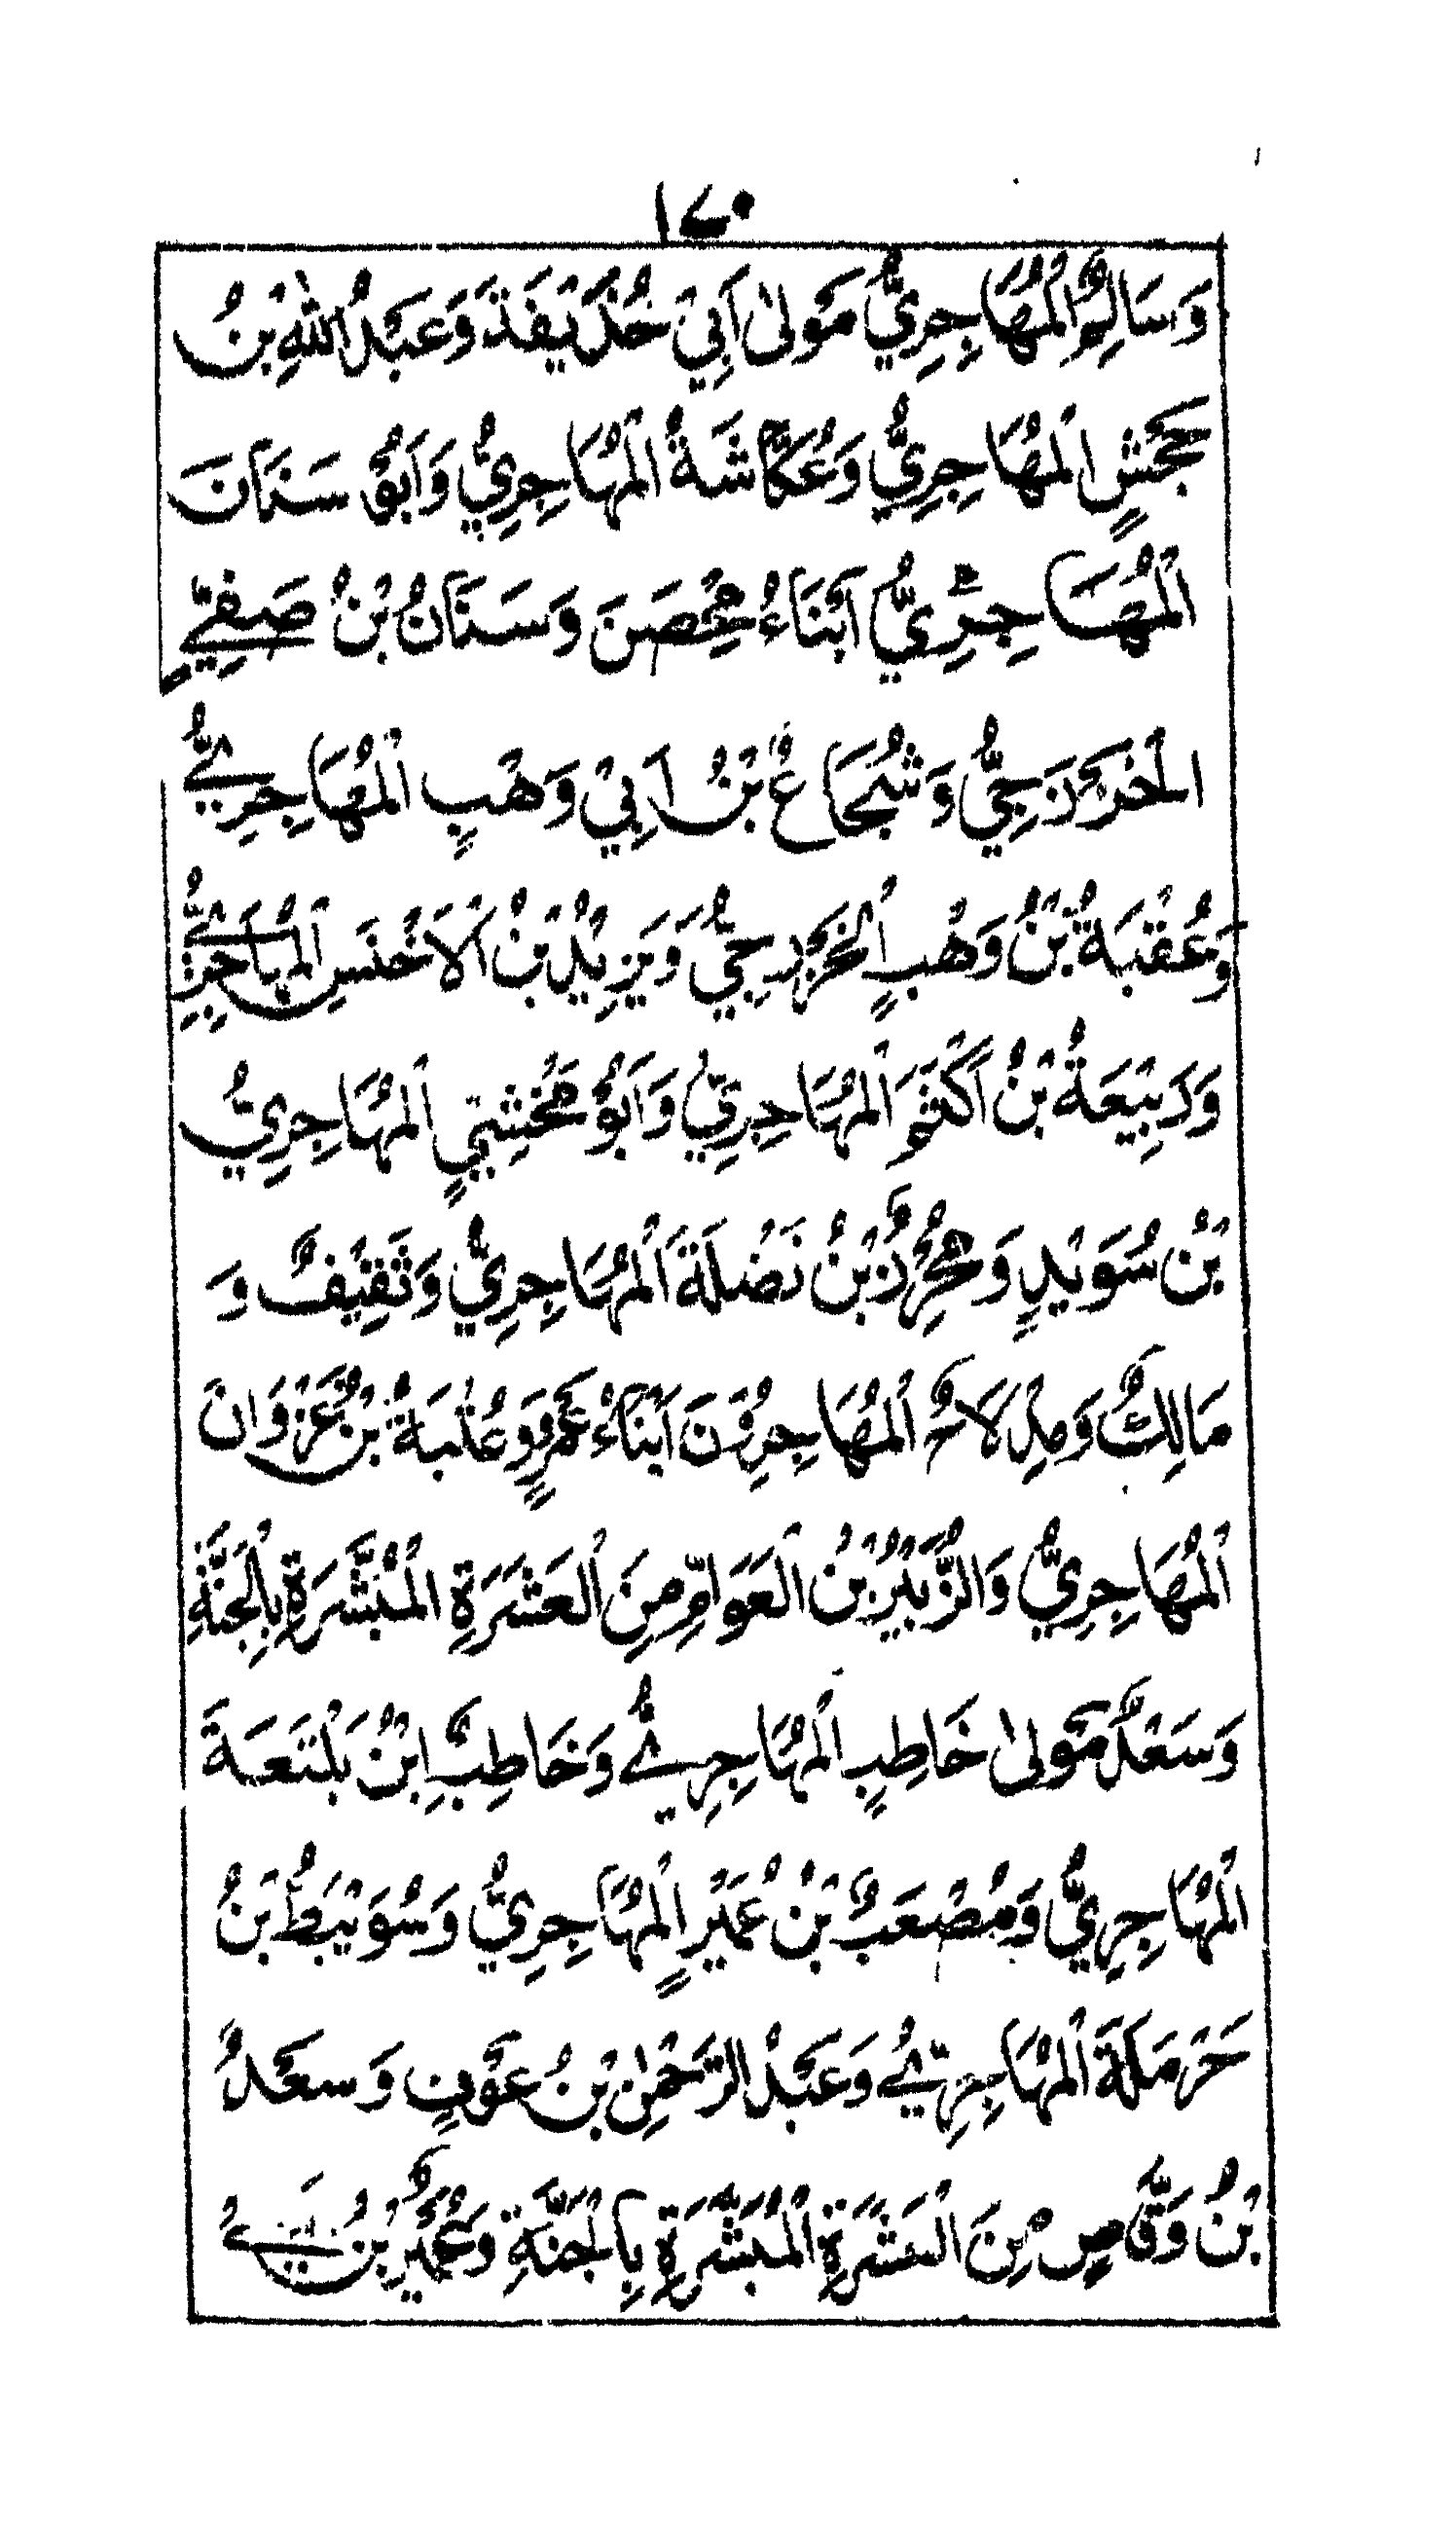 ١٧٠
وَسَالِمُ الْمُهَاجِرِيُّ مَوْلىٰ اَبِيْ حُذَيْفَةَ وَعَبْدُ اللهِ بْنُ
جَحْشٍ الْمُهَاجِرِيُّ وَعُكَّاشَةُ الْمُهَاجِرِيُّ وَاَبُوْ سَنَانَ
الْمُهَاجِرِيُّ اَبْنَاءُ مِحْصَنَ وَسَنَانُ بْنُ صَيْفِيٍّ
الْخَزْرَجِيُّ وَشُجَاعُ بْنُ اَبِيْ وَهْبٍ الْمُهَاجِرِيُّ
وَعُقْبَةُ بْنُ وَهْبٍ الْخَزْرَجِيُّ وَيَزِيْدُ بْنُ الْاَخْنَسِ الْمُهَاجِرِيُّ
وَرَبِيْعَةُ بْنُ اَكْثَمَ الْمُهَاجِرِيُّ وَاَبُوْ مَخْشِيٍّ الْمُهَاجِرِيُّ
بْنُ سُوَيْدٍ وَمُحْرِزُ بْنُ نَضْلَةَ الْمُهَاجِرِيُّ وَثَقِيْفٌ وَ
مَالِكٌ وَمِدْلَاجُ الْمُهَاجِرُوْنَ اَبْنَاءُ عَمْرٍو وَعُتْبَةُ بْنُ غَزْوَانَ
الْمُهَاجِرِيُّ وَالزُّبَيْرُ بْنُ الْعَوَامِّ مِنَ الْعَشَرَةِ الْمُبَشَّرَةِ بِالْجَنَّةِ
وَسَعْدٌ مَوْلىٰ خَاطِبٍ الْمُهَاجِرِيُّ وَخَاطِبُ ابْنُ بَلْتَعَةَ
الْمُهَاجِرِيُّ وَمُصْعَبُ بْنُ عُمَيْرٍ الْمُهَاجِرِيُّ وَسُوَيْبَطُ بْنُ
حَرْمَلَةَ الْمُهَاجِرِيُّ وَعَبْدُ الرَّحْمٰنِ بْنُ عَوْفٍ وَسَعْدُ
بْنُ وَقَّاصٍ مِنَ الْعَشَرَةِ الْمُبَشَّرَةِ بِالْجَنَّةِ وَعُمَيْرُ بْنُ